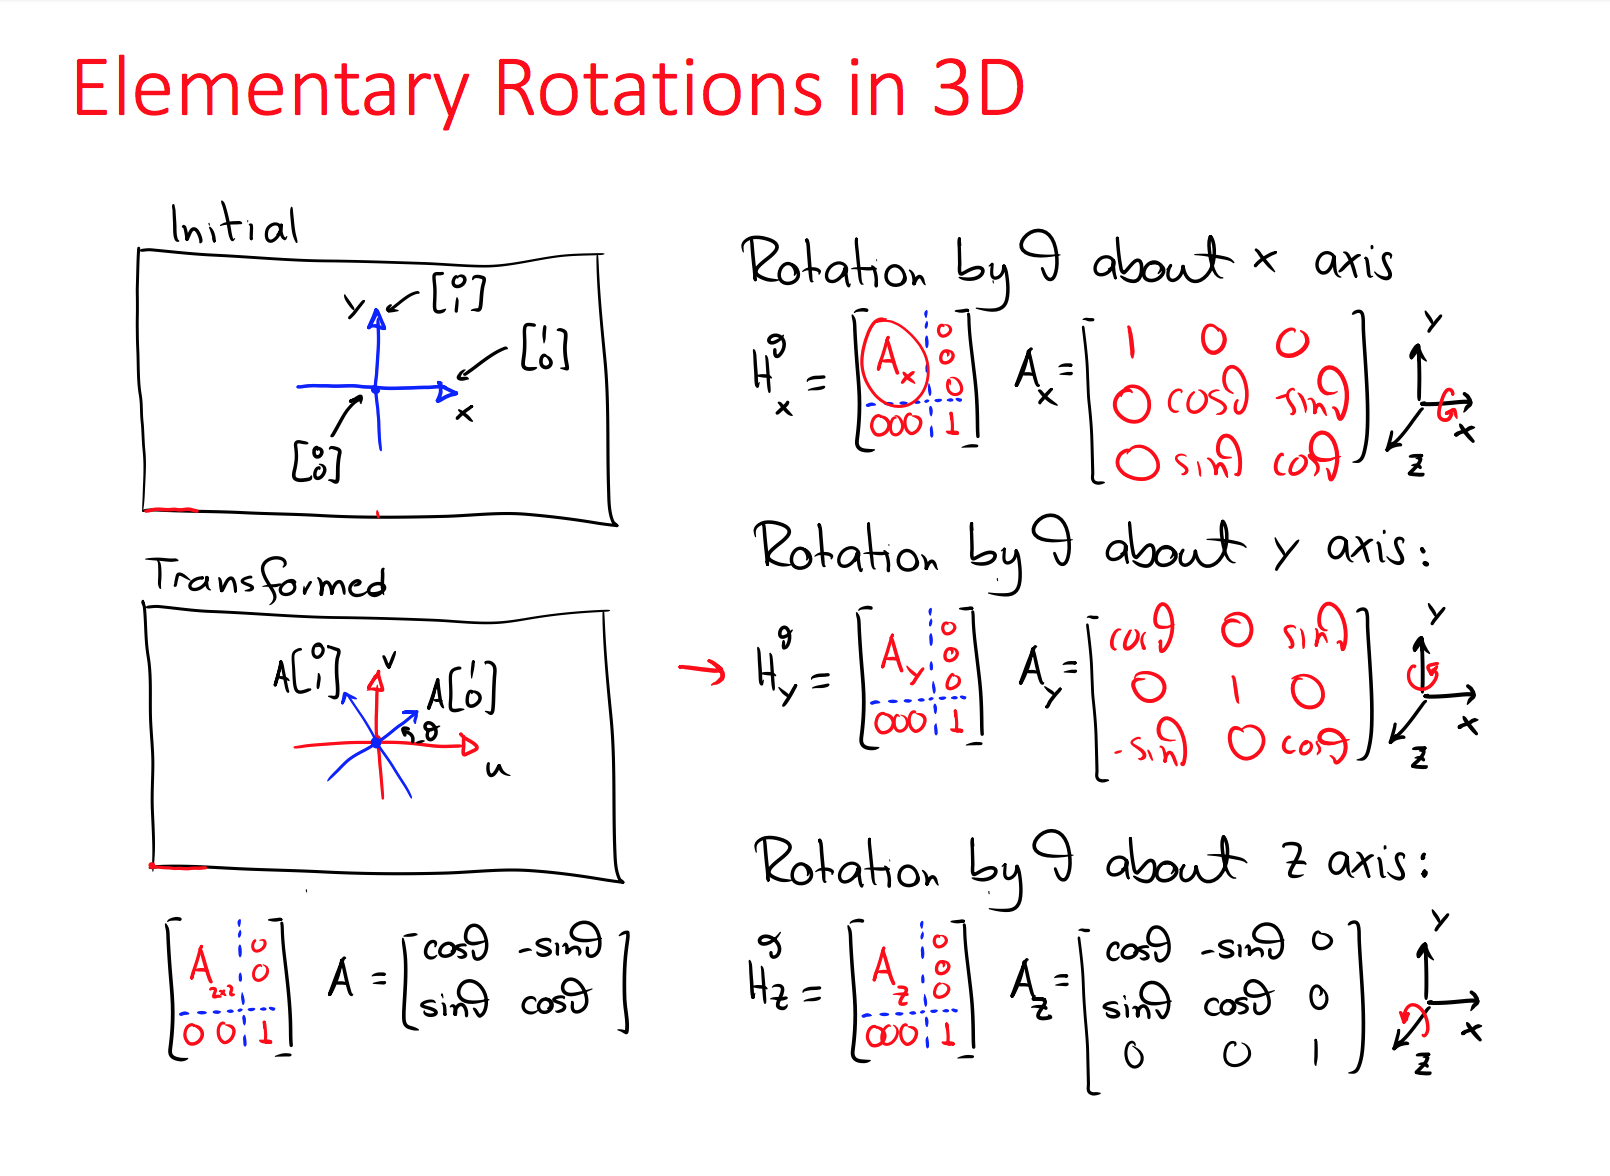 Elementary Rotations in 3D
Initial
y [0 1]
[1 0]
x
[0 0]
Transformed
A[0 1] v A[1 0]
θ
u
[A2x2 0 0 0 0 1] A = [cosθ -sinθ
sinθ cosθ]
Rotation by θ about x axis
Hxθ = [Ax 0 0 0 000 1] Ax = [1 0 0
0 cosθ sinθ
0 sinθ cosθ]
y
x
z
Rotation by θ about y axis:
→ Hyθ = [Ay 0 0 0 000 1] Ay = [cosθ 0 sinθ
0 1 0
-sinθ 0 cosθ]
y
x
z
Rotation by θ about z axis:
Hzθ = [Az 0 0 0 000 1] Az = [cosθ -sinθ 0
sinθ cosθ 0
0 0 1]
y
x
z